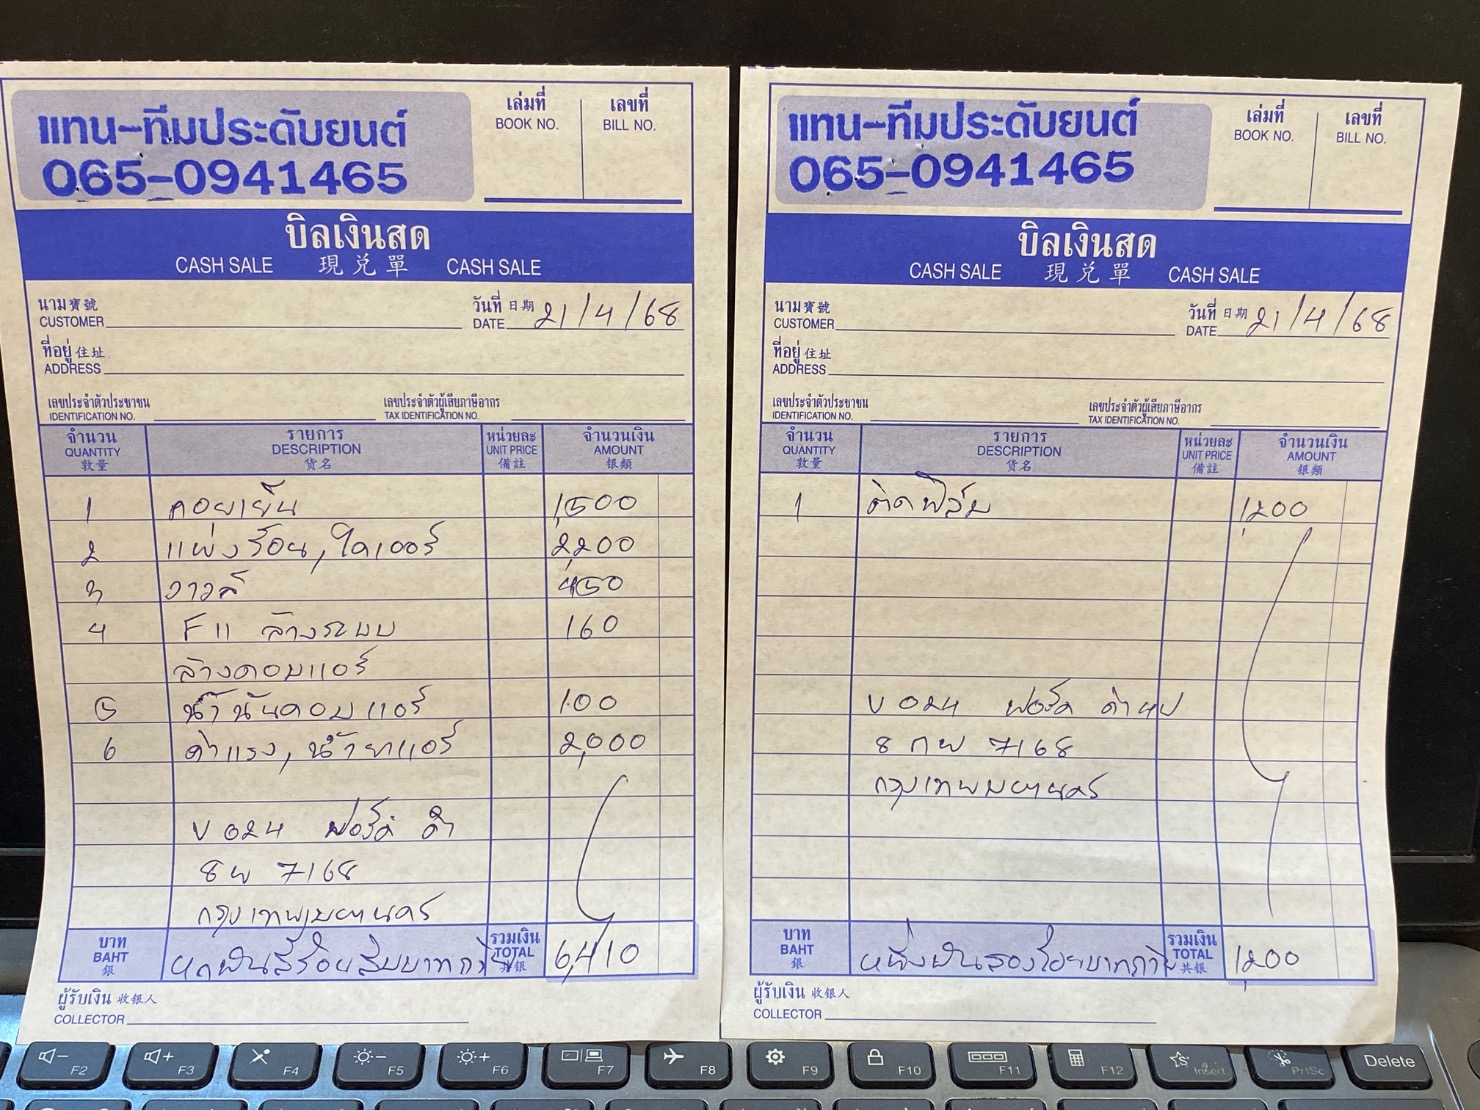 แทน-ทีมประดับยนต์
065-0941465
เล่มที่
BOOK NO.
เลขที่
BILL NO.
บิลเงินสด
CASH SALE 現兑單 CASH SALE
นาม 寶號
CUSTOMER
วันที่ 日期
DATE 21/4/68
ที่อยู่ 住址
ADDRESS
เลขประจำตัวประชาชน
IDENTIFICATION NO.
เลขประจำตัวผู้เสียภาษีอากร
TAX IDENTIFICATION NO.
จำนวน
QUANTITY
敦量
รายการ
DESCRIPTION
貨名
หน่วยละ
UNIT PRICE
備註
จำนวนเงิน
AMOUNT
银類
1 คอยเย็น 1,500
2 แผ่งร้อน, ไดเออร์ 2,200
3 วาวล์ 450
4 F11 ล้างระบบ 160
ล้างคอมแอร์
5 น้ำมันคอมแอร์ 100
6 ค่าแรง, น้ำยาแอร์ 2,000
V 024 ฟอร์ด ดำ
8 7168
กรุงเทพมหานคร
บาท
BAHT
銀
หกพันสี่ร้อยสิบบาทถ้วน
รวมเงิน
TOTAL
共銀
6,410
ผู้รับเงิน 收银人
COLLECTOR
แทน-ทีมประดับยนต์
065-0941465
เล่มที่
BOOK NO.
เลขที่
BILL NO.
บิลเงินสด
CASH SALE 現兑單 CASH SALE
นาม 寶號
CUSTOMER
วันที่ 日期
DATE 21/4/68
ที่อยู่ 住址
ADDRESS
เลขประจำตัวประชาชน
IDENTIFICATION NO.
เลขประจำตัวผู้เสียภาษีอากร
TAX IDENTIFICATION NO.
จำนวน
QUANTITY
敦量
รายการ
DESCRIPTION
貨名
หน่วยละ
UNIT PRICE
備註
จำนวนเงิน
AMOUNT
银類
1 ติดฟิล์ม 1,200
V 024 ฟอร์ด
8 กพ 7168
กรุงเทพมหานคร
บาท
BAHT
銀
หนึ่งพันสองร้อยบาทถ้วน
รวมเงิน
TOTAL
共銀
1,200
ผู้รับเงิน 收银人
COLLECTOR
F2
F3
F4
F5
F6
F7
F8
F9
F10
F11
F12
Insert
PrtSc
Delete